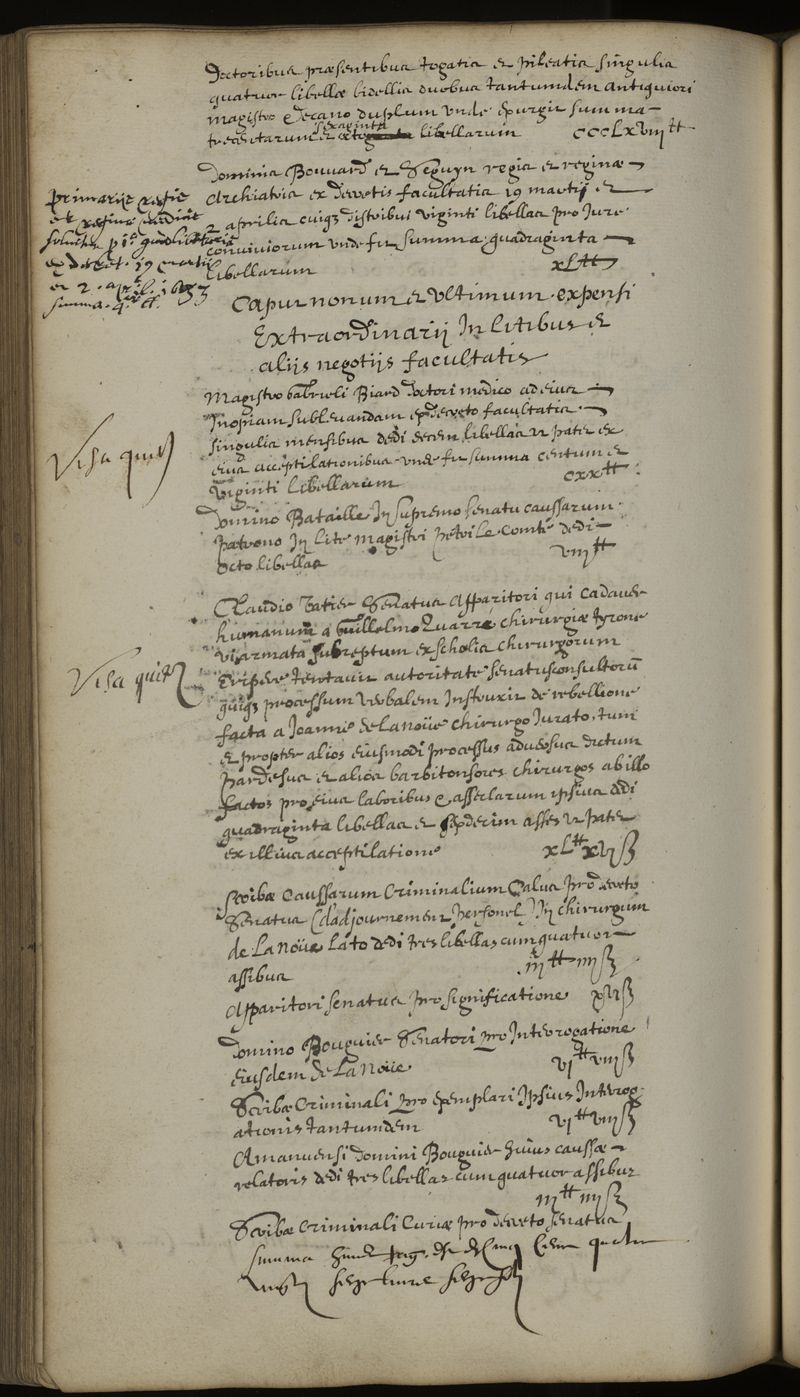 Doctoribus præsentibus togatis et pileatis singulis
quatuor libellæ bidellis duobus tantumdem antiquiori
magistro Decano duplum unde exurgit summa
trecentarum sexaginta et octo libellarum cccLxviij ₶
Dominis Bouvard et Seguyn regis et reginæ
Archiatris ex decretis facultatis 19 martij et
2 aprilis cuiq; distribui viginti libellas pro Jure
conviviorum unde fit summa quadraginta
libellarum xL ₶
Primarijs regis
et reginæ medicis
ex decret. 19 martii
et 2. april. 1633
summa
Caput nonum et ultimum expensi
Extraordinarij In litibus et
alijs negotijs facultatis
Visa quit
Magistro Gabrieli Biard doctori medico ad eius
Inopiam sublevandam ex decreto facultatis
singulis mensibus dedi decem libellas ut patet ex
eius acceptilationibus unde fit summa centum et
viginti libellarum cxx ₶
Domino Bataille In supremo senatu caussarum
patrono In lite magistri petri le Comte dedi
octo libellas viij ₶
Visa quit
Claudio Tatier Senatus Apparitori qui cadaver
humanum a Guillelmo Quarré chirurgiæ tyrone
vi armata subreptum ex scholis chirurgorum
Eripere tentavit autoritate senatusconsultorū
quiq; processum verbalem Instruxit de rebellione
facta a Joanne de la Noüe chirurgo Jurato, tum
et propter alios eiusmodi processus adversus dictum
pardesus et alios barbitonsores chirurgos ab illo
factos pro eius laboribus & asseclarum ipsius dedi
quadraginta libellas et sexdecim asses ut patet
ex illius acceptilatione xL ₶ xvj ß
Scribæ Caussarum Criminalium Calus pro decreto
Senatus (dadjournement personel) In chirurgum
de La Noüe lato dedi tres libellas cum quatuor
assibus iij ₶ iiij ß
Apparitori senatus pro significatione xvj ß
Domino Bouguier Senatori pro Interrogatione
eiusdem de La Noüe vj ₶ viij ß
Scribæ Criminali pro exemplari Ipsius Interrog-
ationis tantumdem vj ₶ viij ß
Amanuensi domini Bouguier huius caussæ
relatoris dedi tres libellas cum quatuor assibus
iij ₶ iiij ß
Scribæ Criminali Curiæ pro decreto senatus
summa